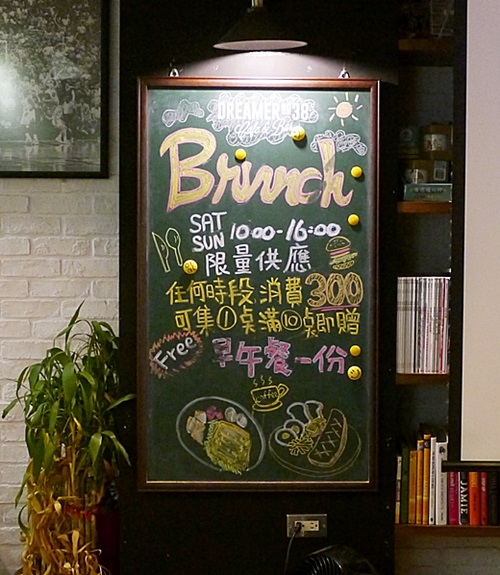 DREAMER@38
Brunch
SAT
SUN 10:00-16:00
限量供應
任何時段消費300
可集①点滿⑩点即贈
Free 早午餐一份
coffee
JAMIE